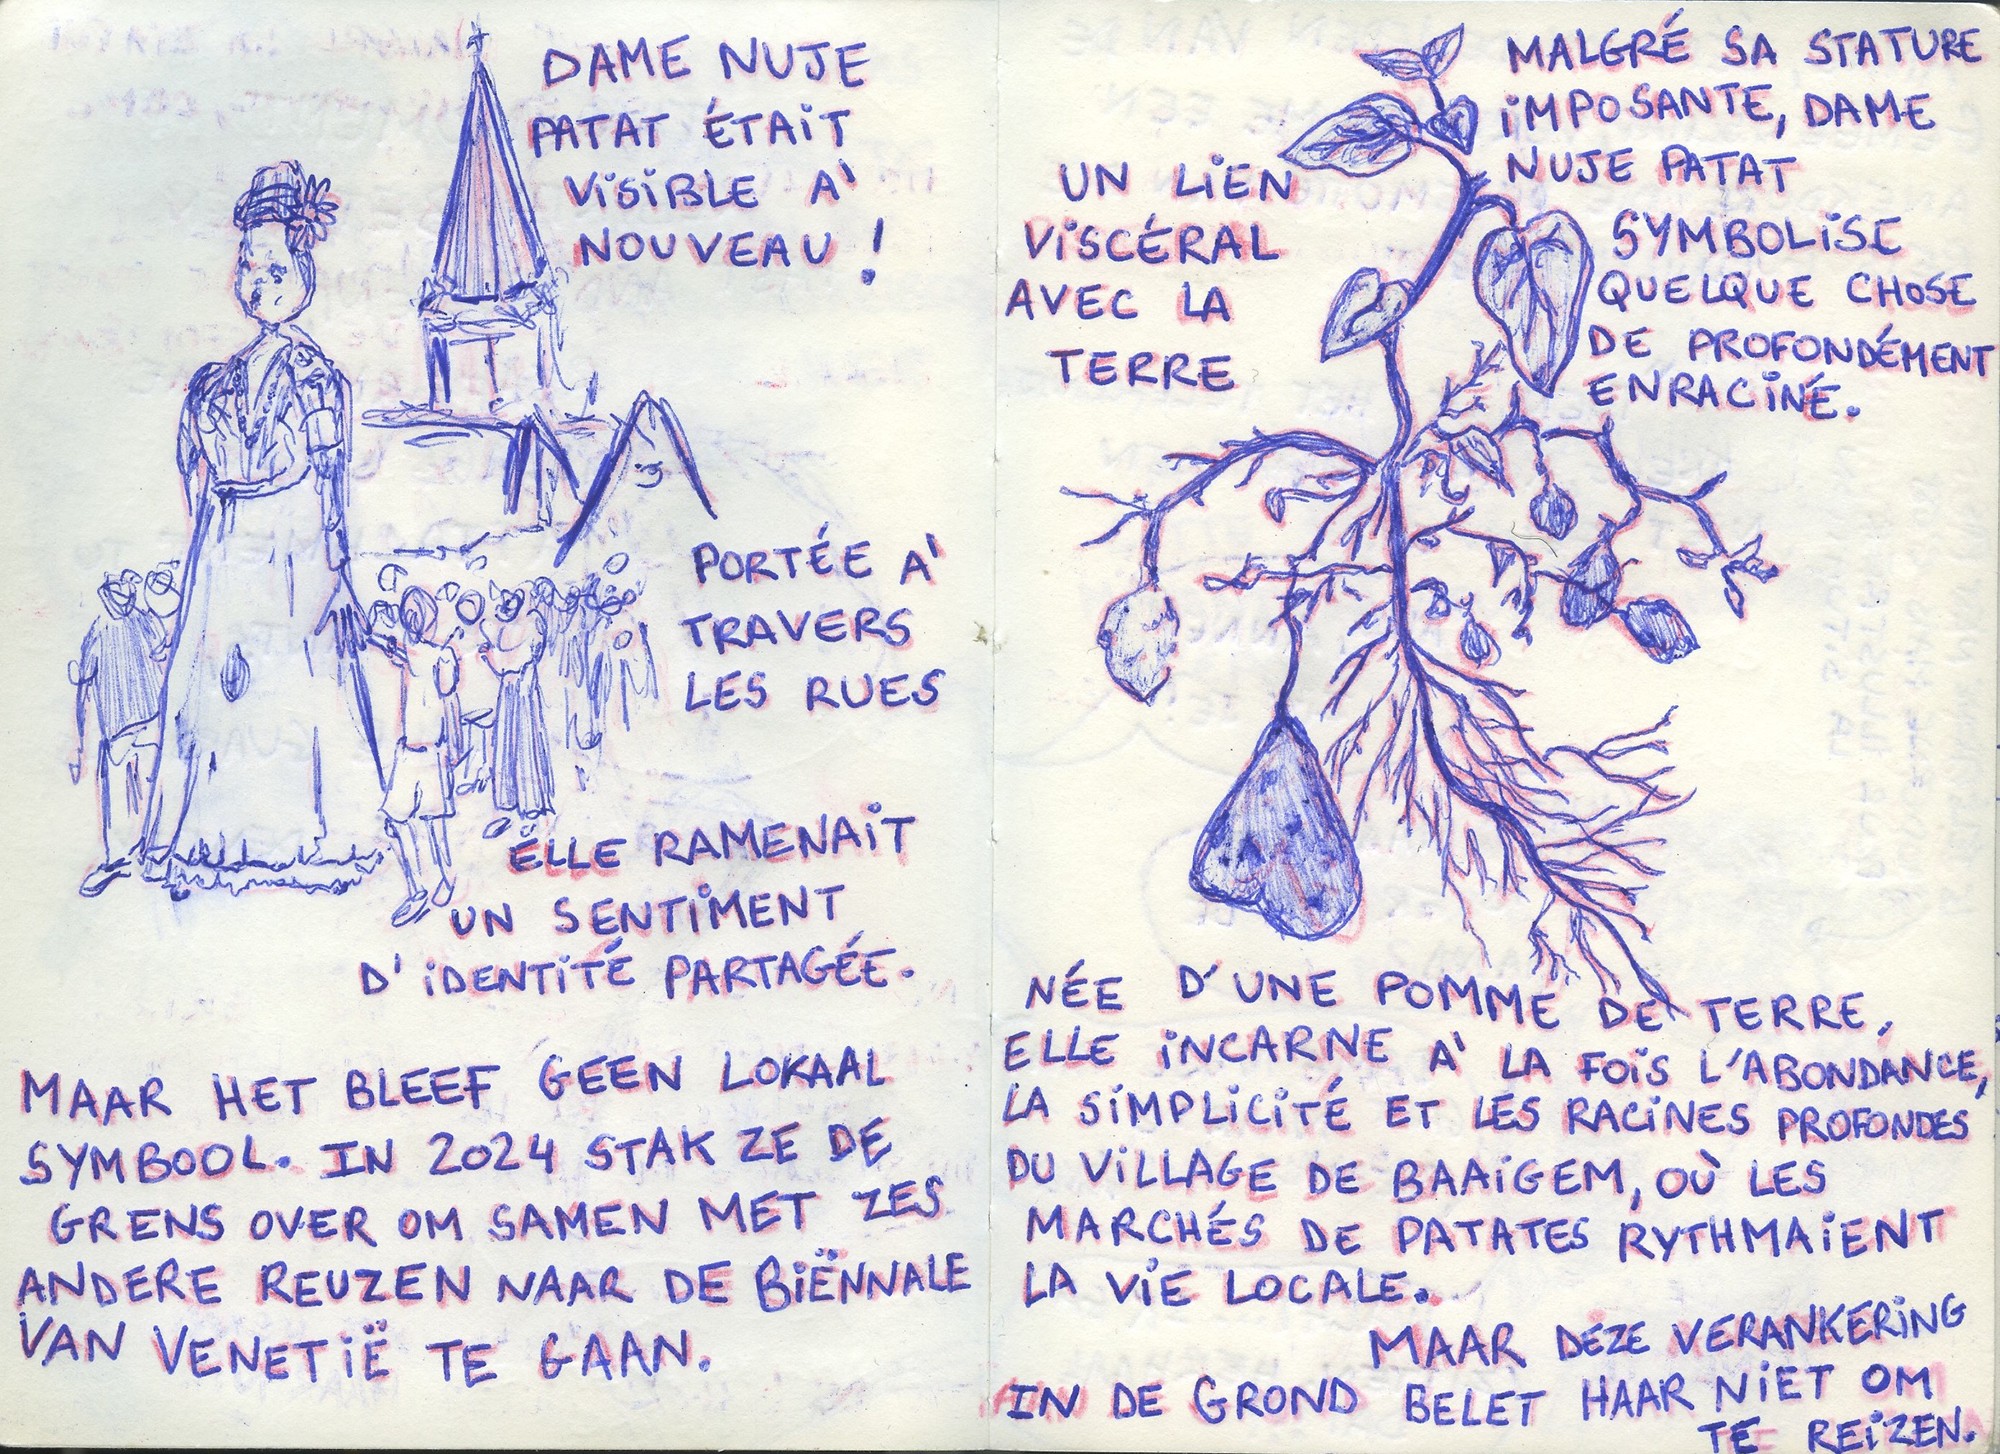 DAME NUJE
PATAT ÉTAIT
VISIBLE À
NOUVEAU !
PORTÉE À
TRAVERS
LES RUES
ELLE RAMENAIT
UN SENTIMENT
D'IDENTITÉ PARTAGÉE.
MAAR HET BLEEF GEEN LOKAAL
SYMBOOL. IN 2024 STAK ZE DE
GRENS OVER OM SAMEN MET ZES
ANDERE REUZEN NAAR DE BIËNNALE
VAN VENETIË TE GAAN.
UN LIEN
VISCÉRAL
AVEC LA
TERRE
MALGRÉ SA STATURE
IMPOSANTE, DAME
NUJE PATAT
SYMBOLISE
QUELQUE CHOSE
DE PROFONDÉMENT
ENRACINÉ.
NÉE D'UNE POMME DE TERRE,
ELLE INCARNE À LA FOIS L'ABONDANCE,
LA SIMPLICITÉ ET LES RACINES PROFONDES
DU VILLAGE DE BAAIGEM, OÙ LES
MARCHÉS DE PATATES RYTHMAIENT
LA VIE LOCALE.
MAAR DEZE VERANKERING
IN DE GROND BELET HAAR NIET OM
TE REIZEN.